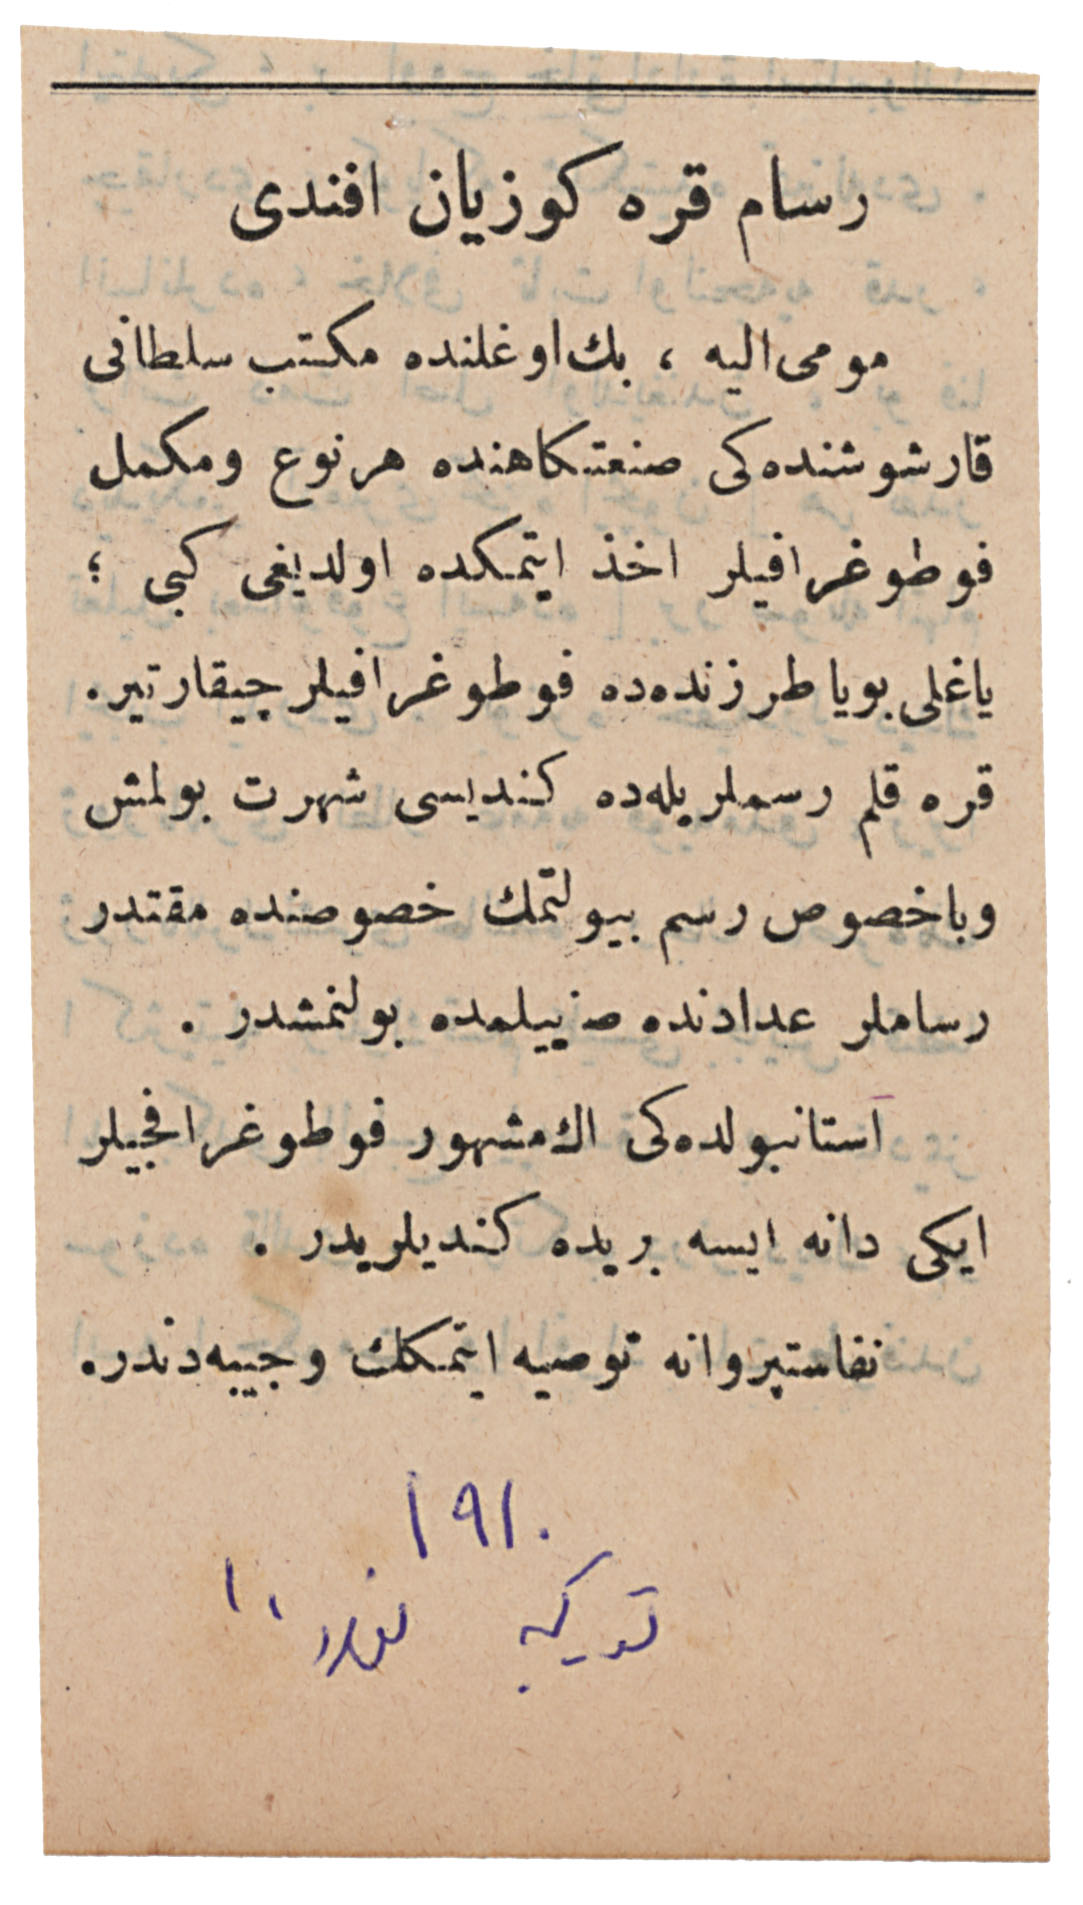 رسام قره كوزیان افندی
مومی‌الیه ، بك‌اوغلنده مكتب سلطانی
قارشوشنده‌كی صنعتكاهنده هرنوع ومكمل
فوطوغرافیلر اخذ ایتمكده اولدیغی كبی ؛
یاغلی بویا طرزنده‌ده فوطوغرافیلر چیقارتیر .
قره قلم رسملریله‌ده كندیسی شهرت بولمش
وباخصوص رسم بیولتمك خصوصنده مقتدر
رساملر عدادنده صاییلمده بولنمشدر .
استانبولده‌كی اك مشهور فوطوغرافجیلر
ایكی دانه ایسه بریده كندیلریدر .
نفاستپروانه توصیه ایتمكلك وجیبه‌دندر .
۱۹۱۰